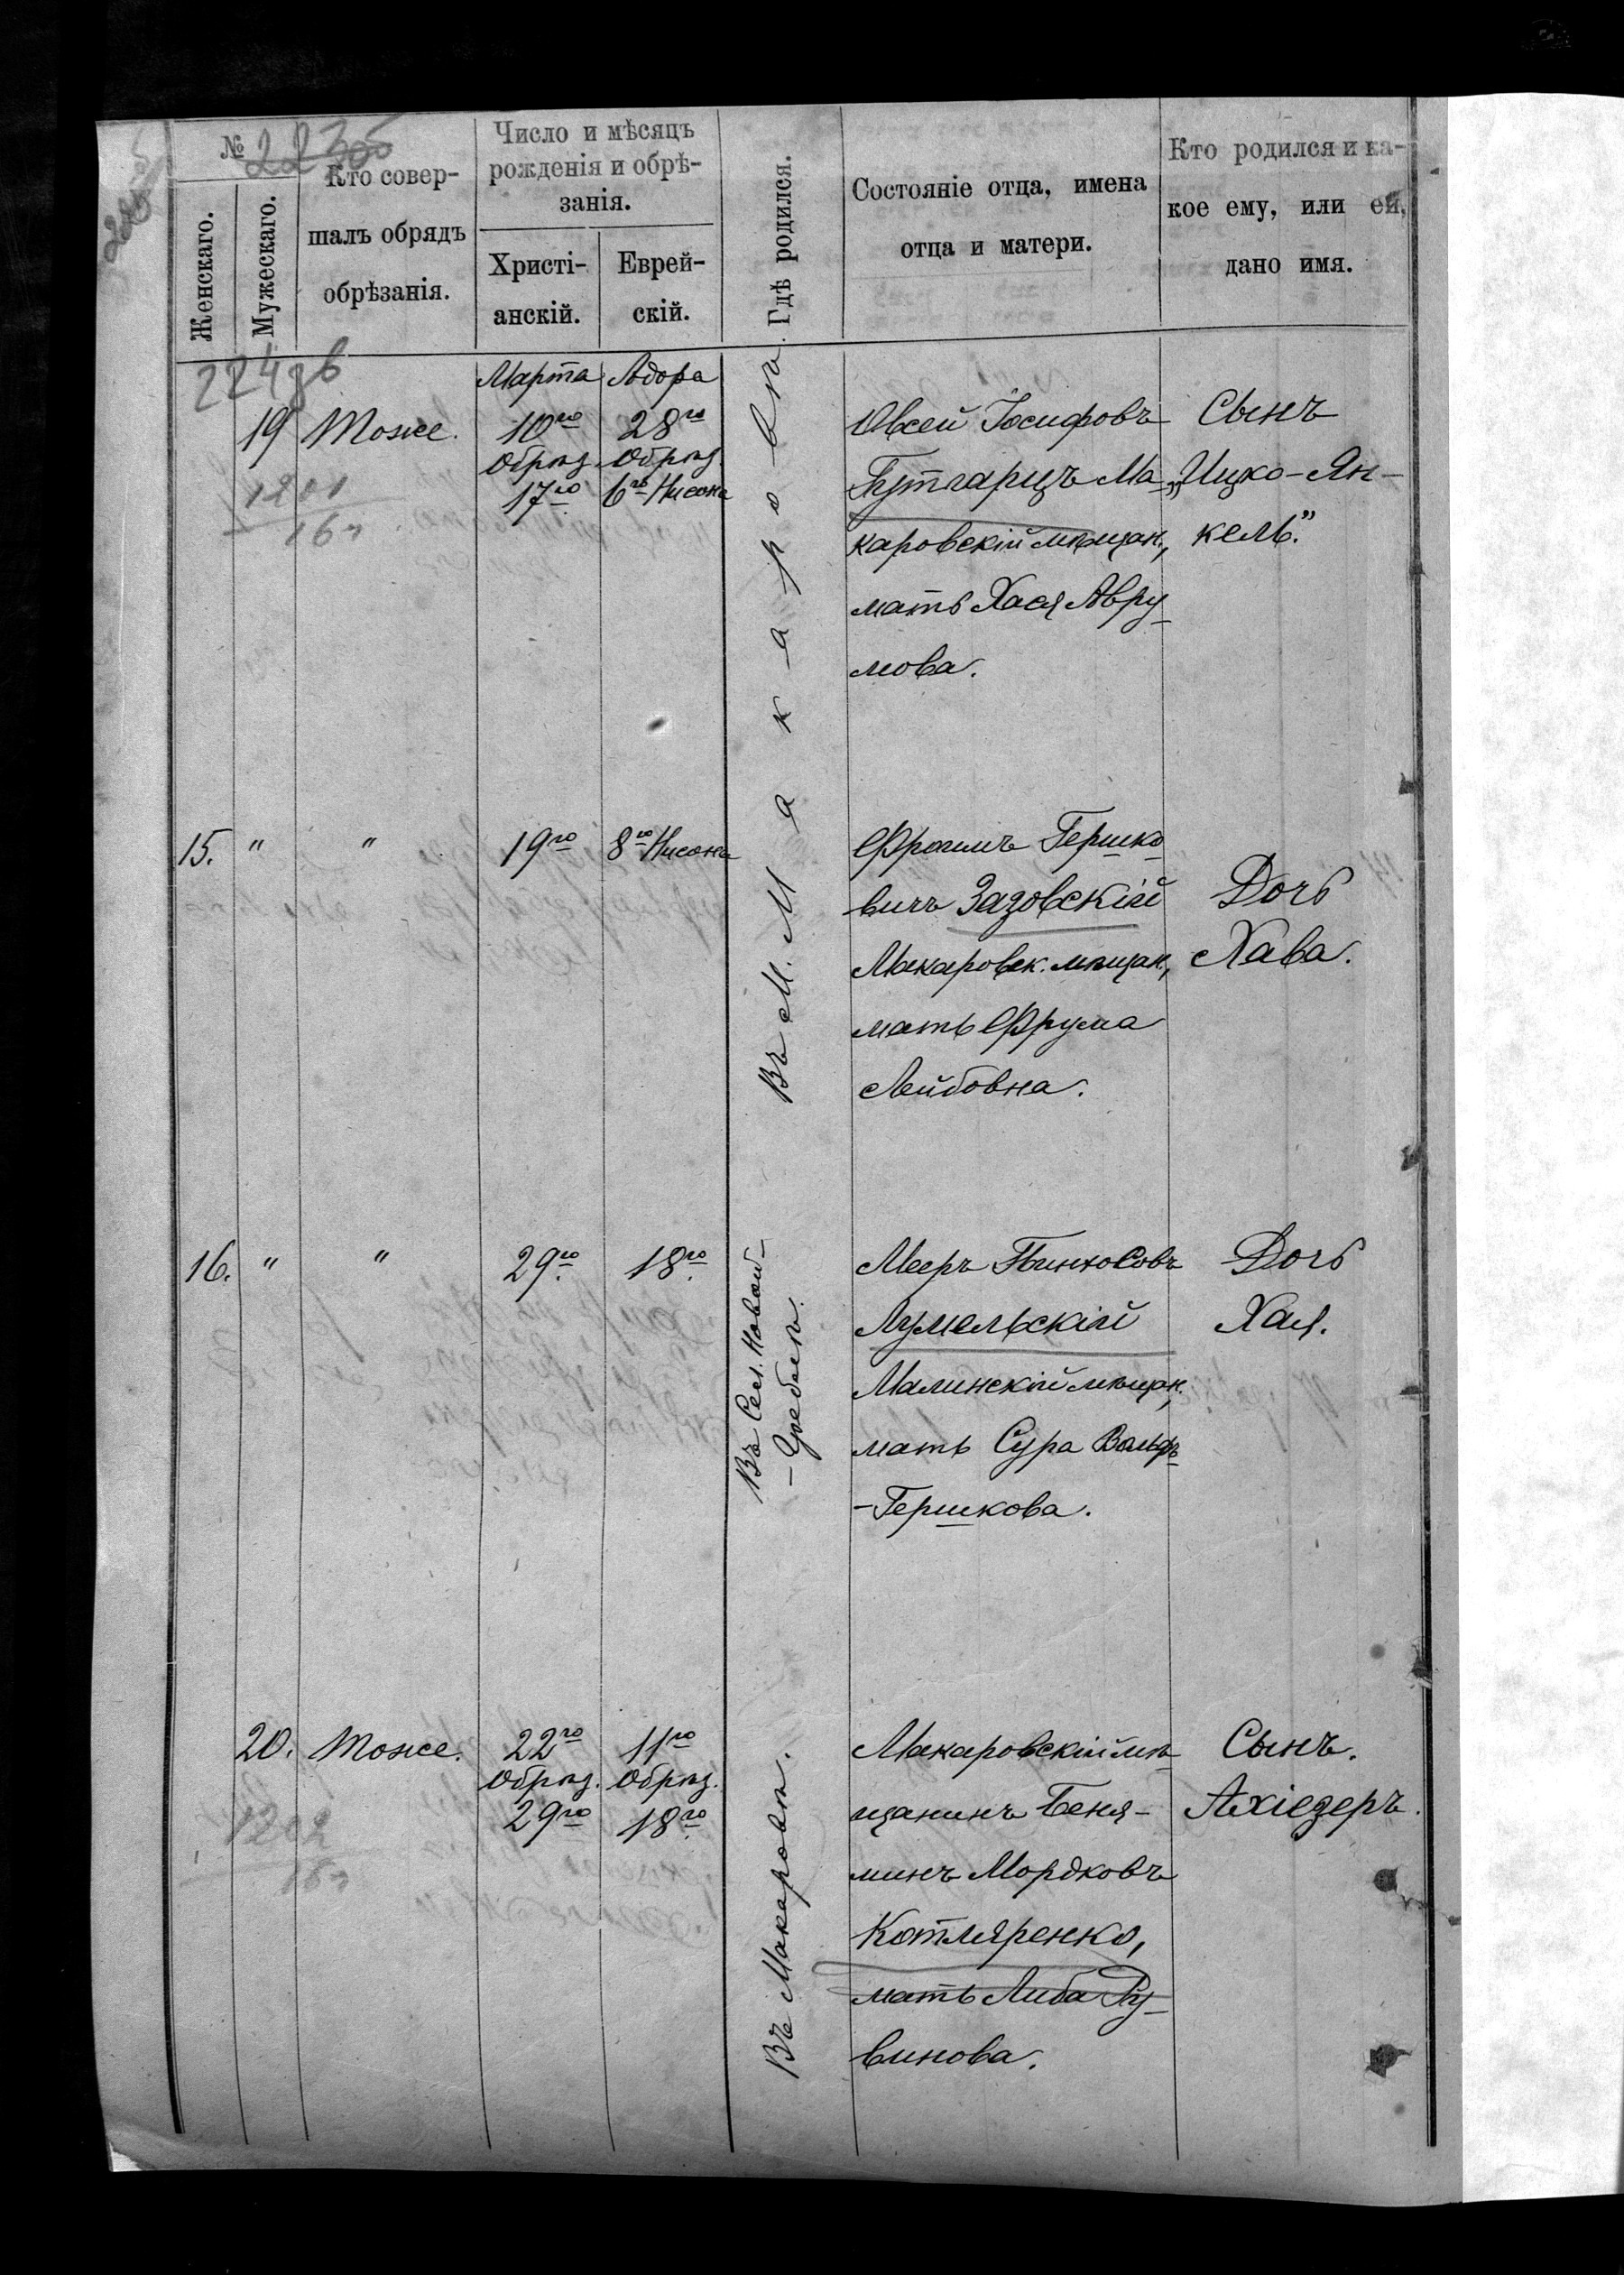 № 22305
Женскаго.
Мужескаго.
Кто совер-
шалъ обрядъ
обрѣзанія.
Число и мѣсяцъ
рожденія и обрѣ-
занія.
Христі-
анскій.
Еврей-
скій.
Гдѣ родился.
Состояніе отца, имена
отца и матери.
Кто родился и ка-
кое ему, или ей,
дано имя.
Марта Адора
19 Тоже. 10го 28го
Обрѣз. Обрѣз.
17го 6го Нисона
1201
16
Въ М. Макаровѣ.
Овсей Іосифовъ
Гутгарцъ Ма-
каровскій мѣщан.,
мать Хася Авру-
мова.
Сынъ
„Ицко-Ян-
кель."
15. " " 19го 8го Нисона
Фроимъ Гершко-
вичъ Зазовскій
Макаровск. мѣщан.,
мать Фрума
Лейбовна.
Дочь
Хава.
16. " " 29го 18го
Въ Сел. Новой-
-Гребли.
Мееръ Пинхосовъ
Лумельскій
Малинскій мѣщан.,
мать Сура Вольф-
-Гершкова.
Дочь
Хая.
20. Тоже. 22го 11го
Обрѣз. Обрѣз.
29го 18го
1202
16
Въ Макаровѣ.
Макаровскій мѣ-
щанинъ Беня-
минъ Мордковъ
Котляренко,
мать Либа Ру-
винова.
Сынъ.
Ахіезеръ.